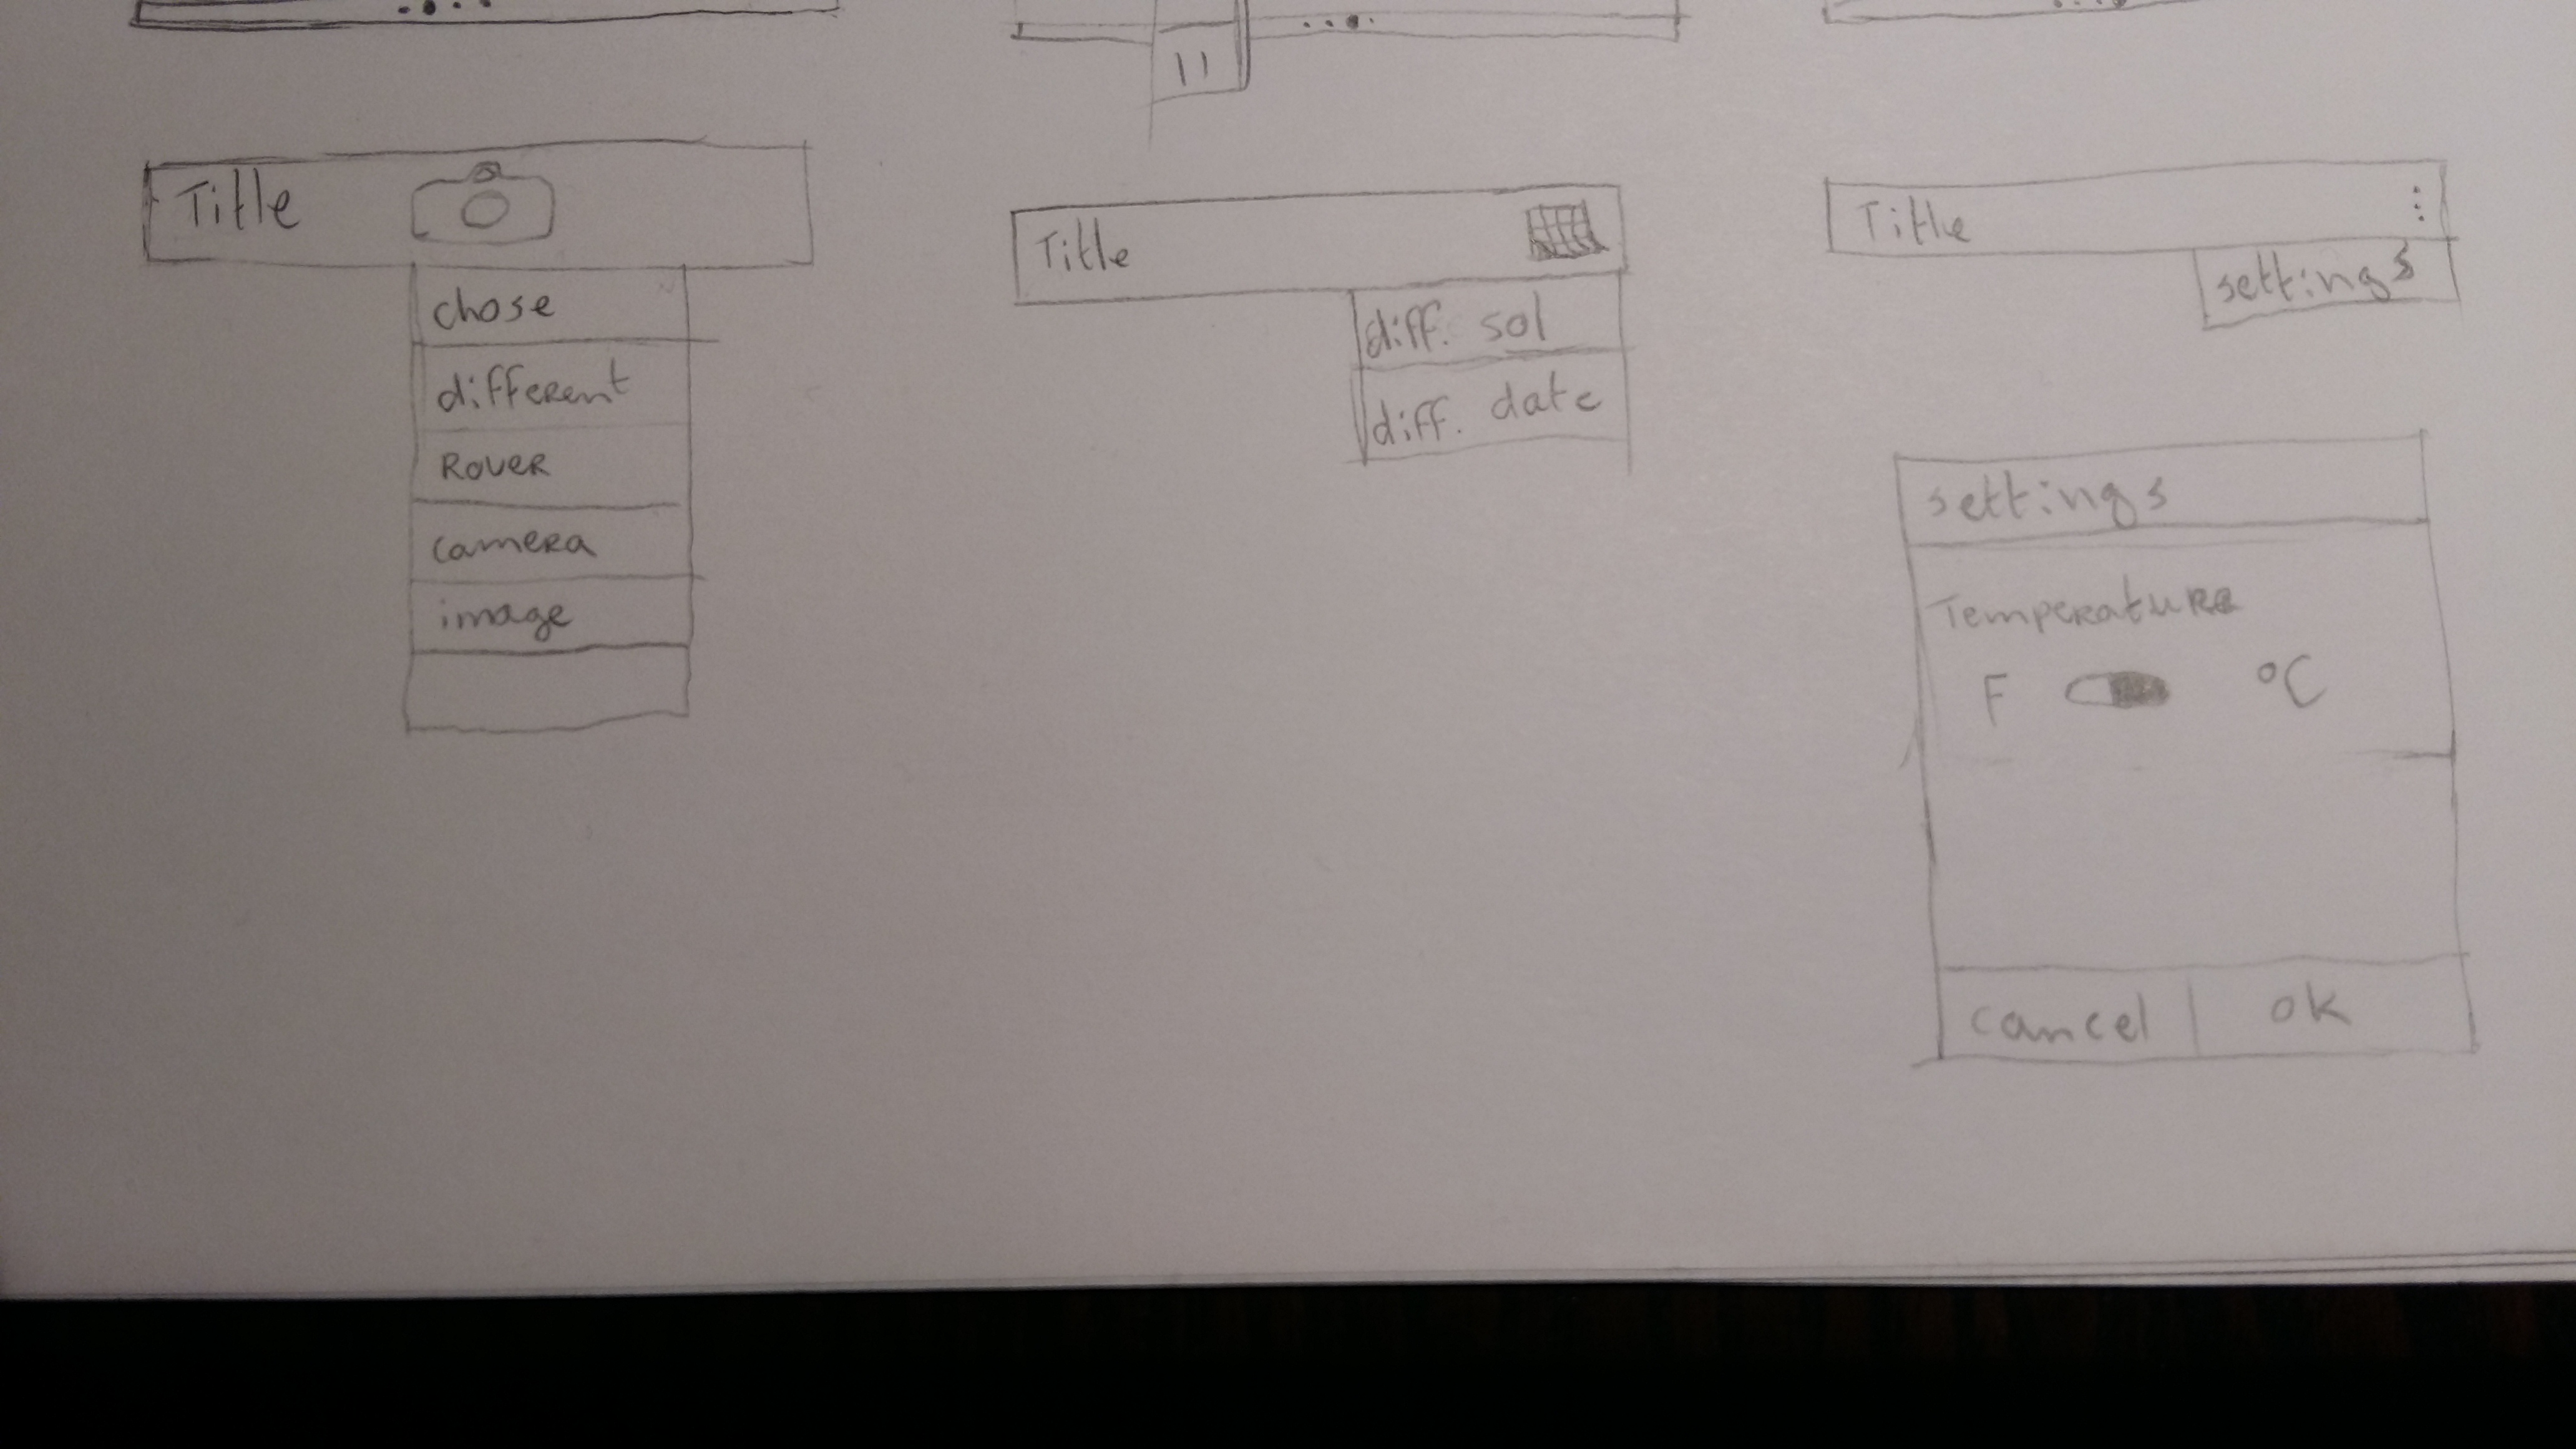 Title
chose
different
Rover
camera
image
Title
diff. sol
diff. date
Title
settings
settings
Temperature
F °C
cancel | ok